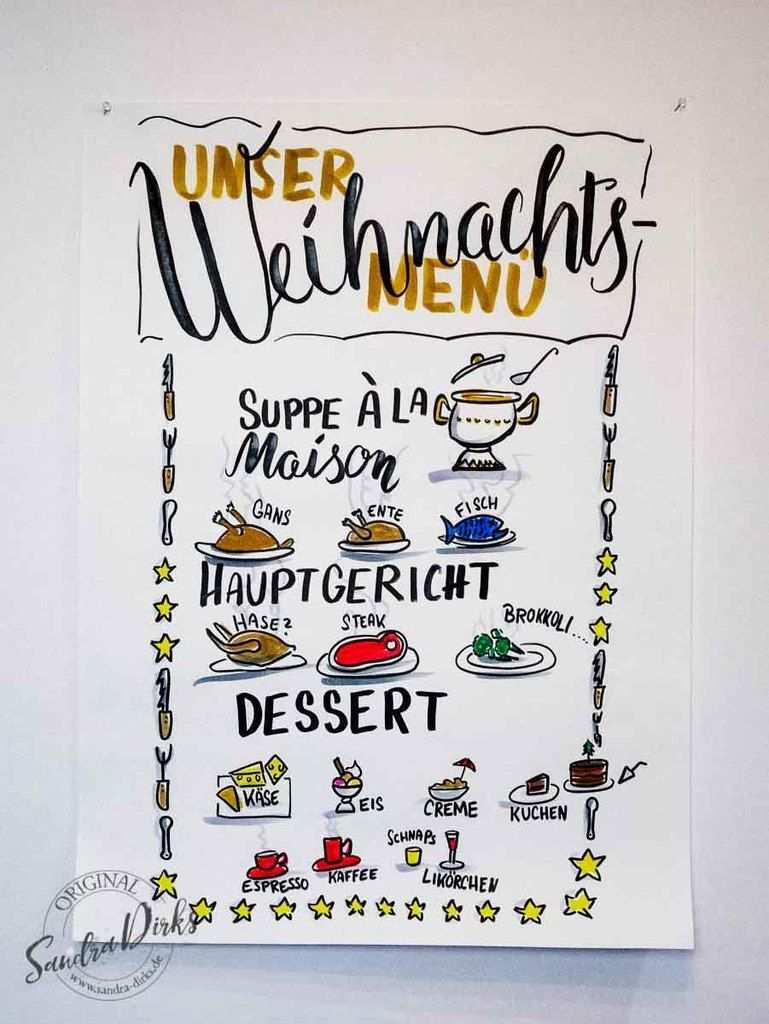 UNSER
Weihnachts-
MENÜ
SUPPE À LA
Maison
GANS
ENTE
FISCH
HAUPTGERICHT
HASE?
STEAK
BROKKOLI...
DESSERT
KÄSE
EIS
CREME
KUCHEN
ESPRESSO
KAFFEE
SCHNAPS
LIKÖRCHEN
ORIGINAL
Sandra Dirks
www.sandra-dirks.de